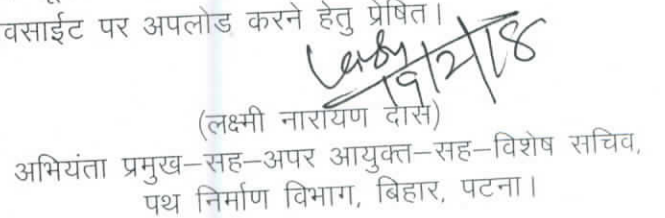 वसाईट पर अपलोड करने हेतु प्रेषित।
19/2/18
(लक्ष्मी नारायण दास)
अभियंता प्रमुख–सह–अपर आयुक्त–सह–विशेष सचिव,
पथ निर्माण विभाग, बिहार, पटना।